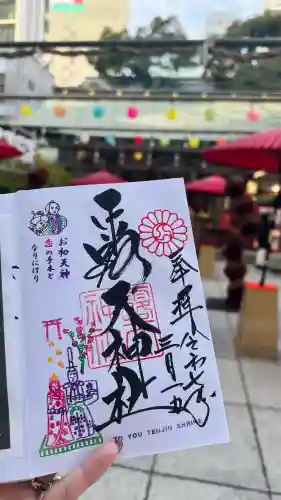 奉拝 令和七年
三月一五
露天神社
お初天神
恋の手本と
なりにけり
TO YOU TENJIN SHRINE